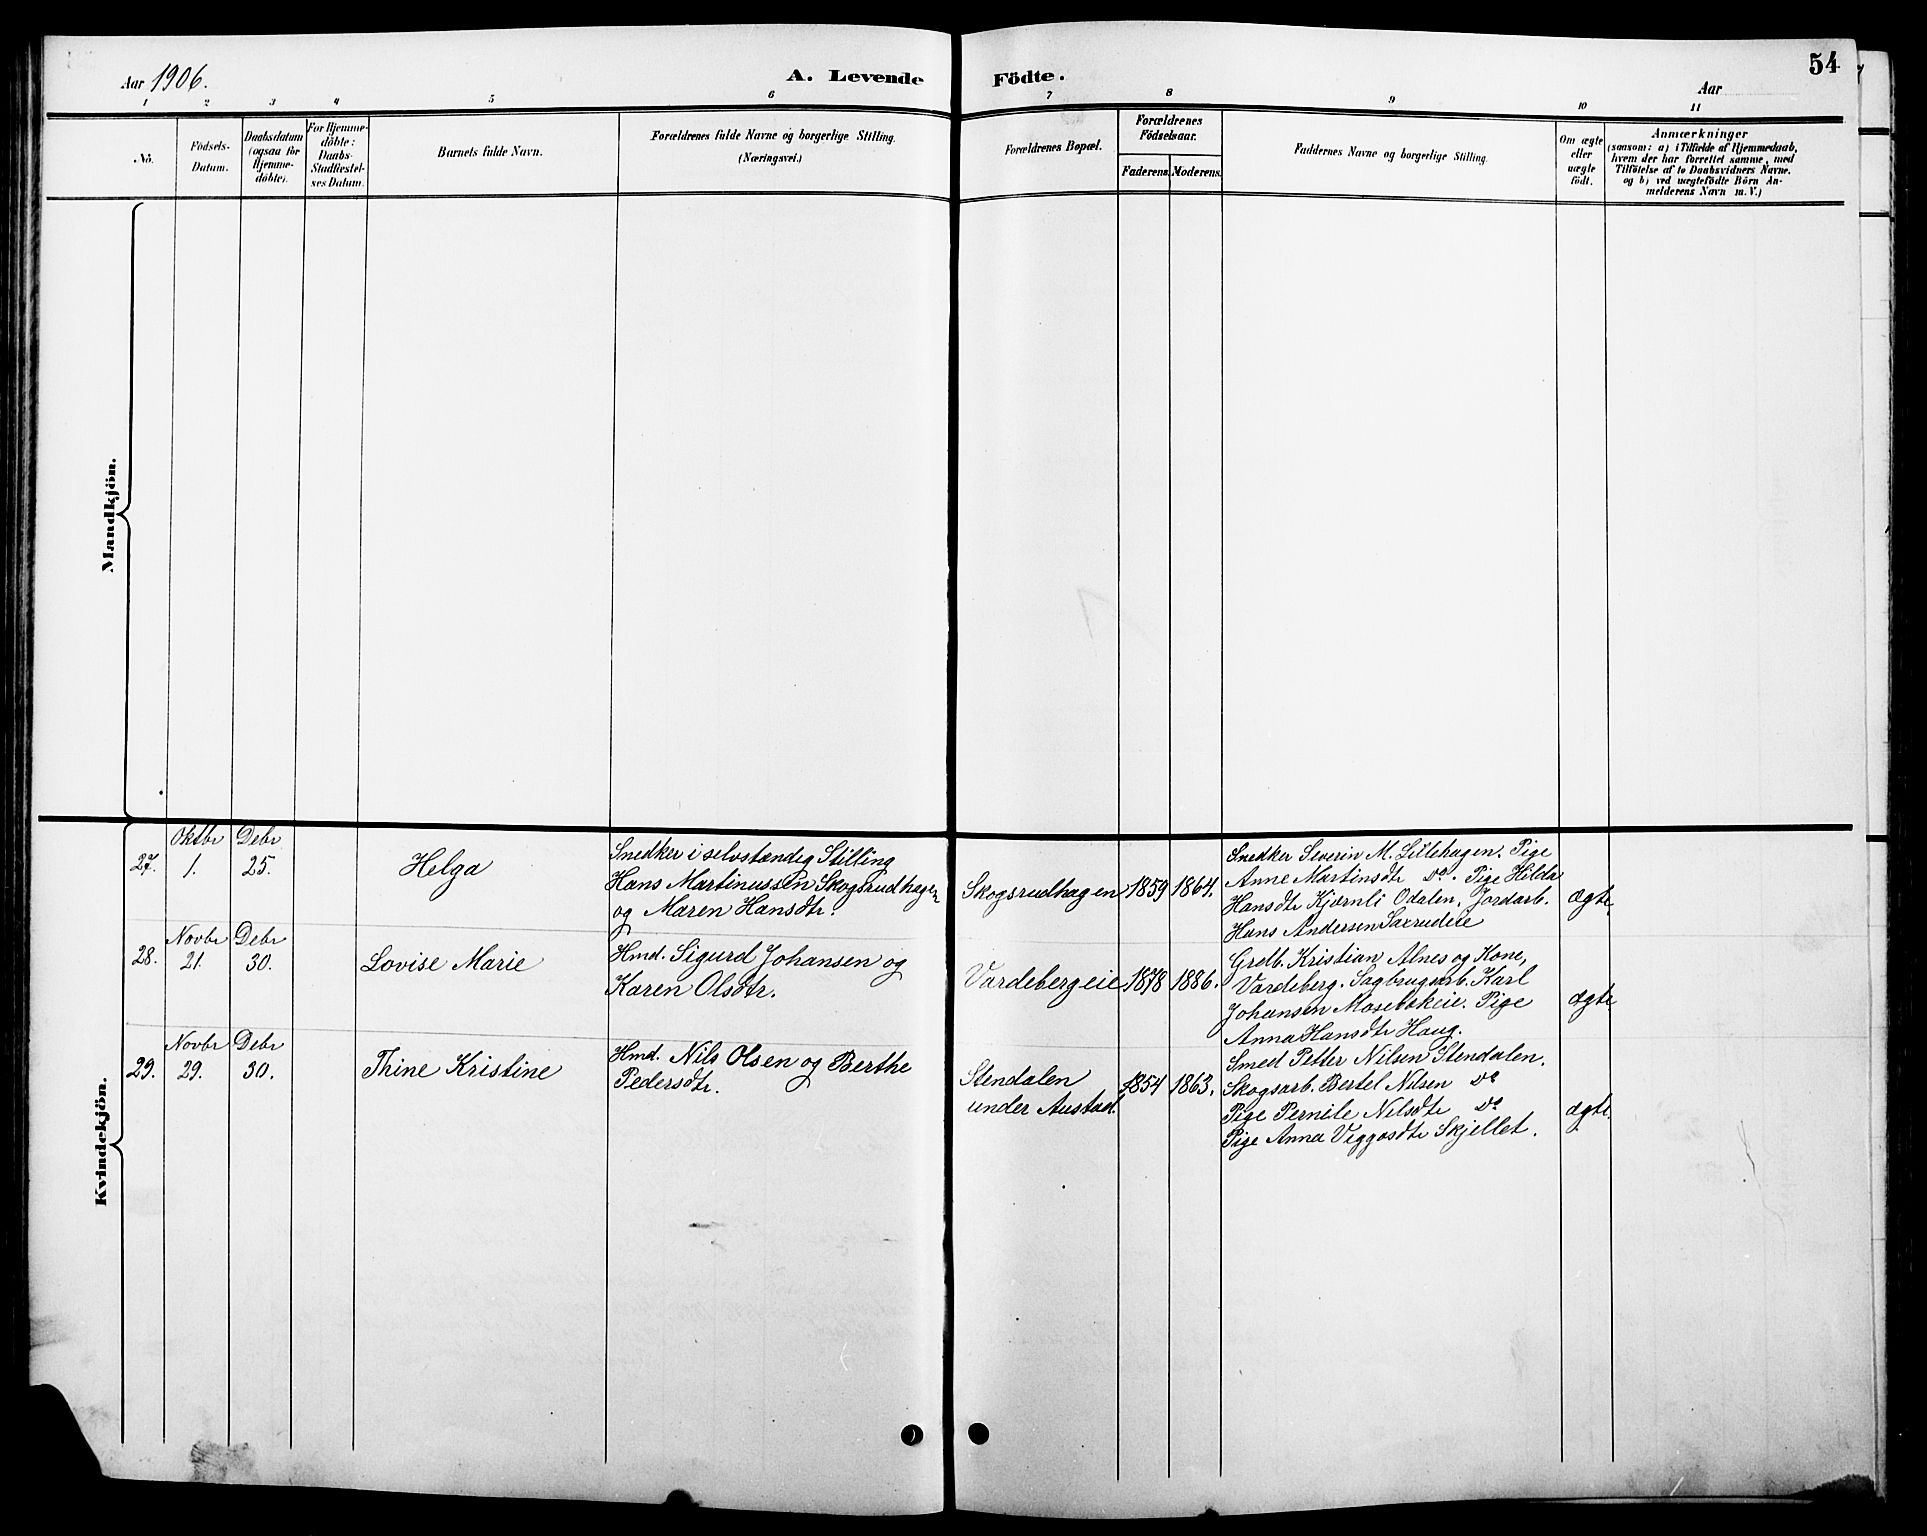 Aar 1906.
A. Levende Födte.
54
Aar
1 2 3 4 5 6 7 8 9 10 11
No.
Födsels-
Datum.
Daabsdatum
(ogsaa for
Hjemme-
döbte).
For Hjemme-
döbte:
Daabs-
Stadfæstel-
ses Datum.
Barnets fulde Navn.
Forældrenes fulde Navne og borgerlige Stilling.
(Næringsvei.)
Forældrenes Bopæl.
Forældrenes
Födselsaar.
Faderens. Moderens.
Faddernes Navne og borgerlige Stilling.
Om ægte
eller
uægte
födt.
Anmærkninger
(saasom: a) i Tilfælde af Hjemmedaab,
hvem der har forrettet samme, med
Tilföielse af to Daabsvidners Navne.
og b) ved uægtefödte Börn An-
melderens Navn m. V.)
Mandkjön.
Kvindekjön.
27.
Oktbr
1.
Debr
25.
Helga
Snedker i selvstændig Stilling
Hans Martinussen Skogsrudhagen
og Maren Hansdtr.
Skogsrudhagen
1859 1864.
Snedker Severin M. Lillehagen. Pige
Anne Martinsdtr do. Pige Hilda
Hansdtr Kjærnli Odalen. Jordarb.
Hans Andersen Saxrudeie
ægte
28.
Novbr
21.
Debr
30.
Lovise Marie
Hmd. Sigurd Johansen og
Karen Olsdtr.
Vardebergeie
1878 1886.
Grdb. Kristian Alnes og Kone,
Vardeberg. Sagbrugsarb. Karl
Johansen Mosebekeie. Pige
Anna Hansdtr Haug.
ægte
29.
Novbr
29.
Debr
30.
Thine Kristine
Hmd. Nils Olsen og Berthe
Pedersdtr.
Stendalen
under Austad.
1854 1863.
Smed Petter Nilsen Stendalen.
Skogsarb. Bertel Nilsen do
Pige Pernile Nilsdtr do
Pige Anna Viggosdtr Skjellet.
ægte